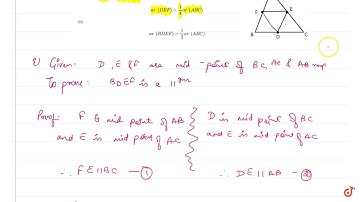 ar (DEF) = 1/4 ar (ABC)
(iii)
ar (BDEF) = 1/2 ar (ABC)
A
F E
B D C
i) Given: D, E & F are mid-point of BC, AC & AB resp
To prove: BDEF is a ||gm
Proof: F is mid point of AB
and E is mid point of AC
∴ FE||BC — ①
D is mid point of BC
and E is mid point of AC
∴ DE||AB — ②